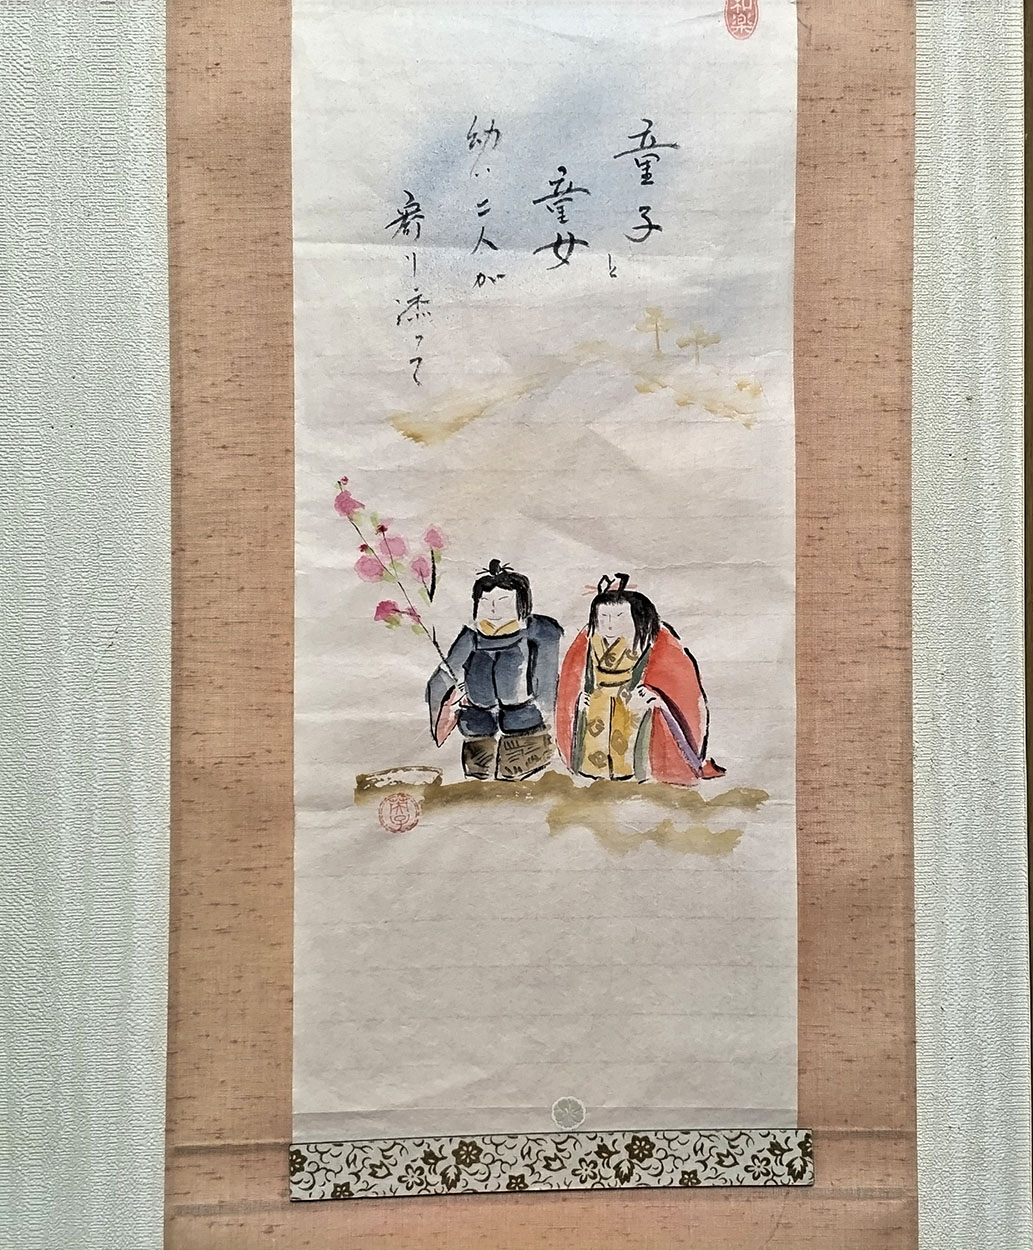 和楽
童子と
童女
幼い二人が
寄り添って